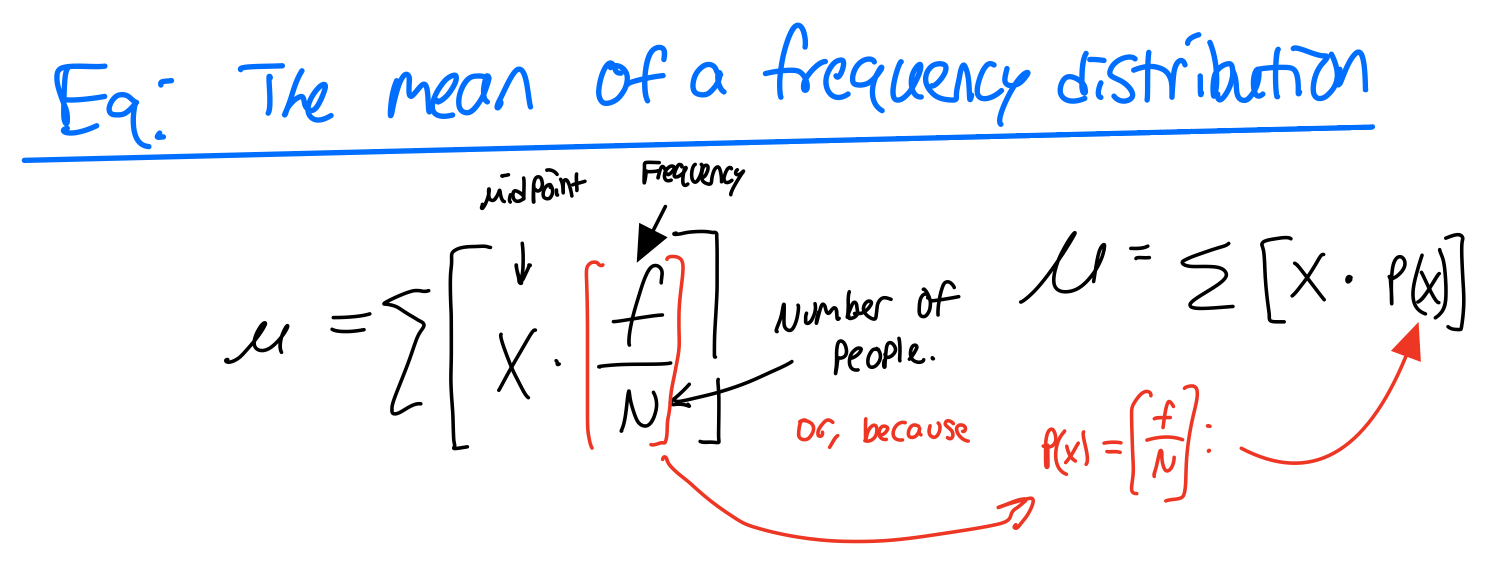 Eq: The mean of a frequency distribution
midpoint
Frequency
μ = Σ [X · [f/N]]
Number of
People.
μ = Σ [X · P(x)]
or, because
P(x) = [f/N] :